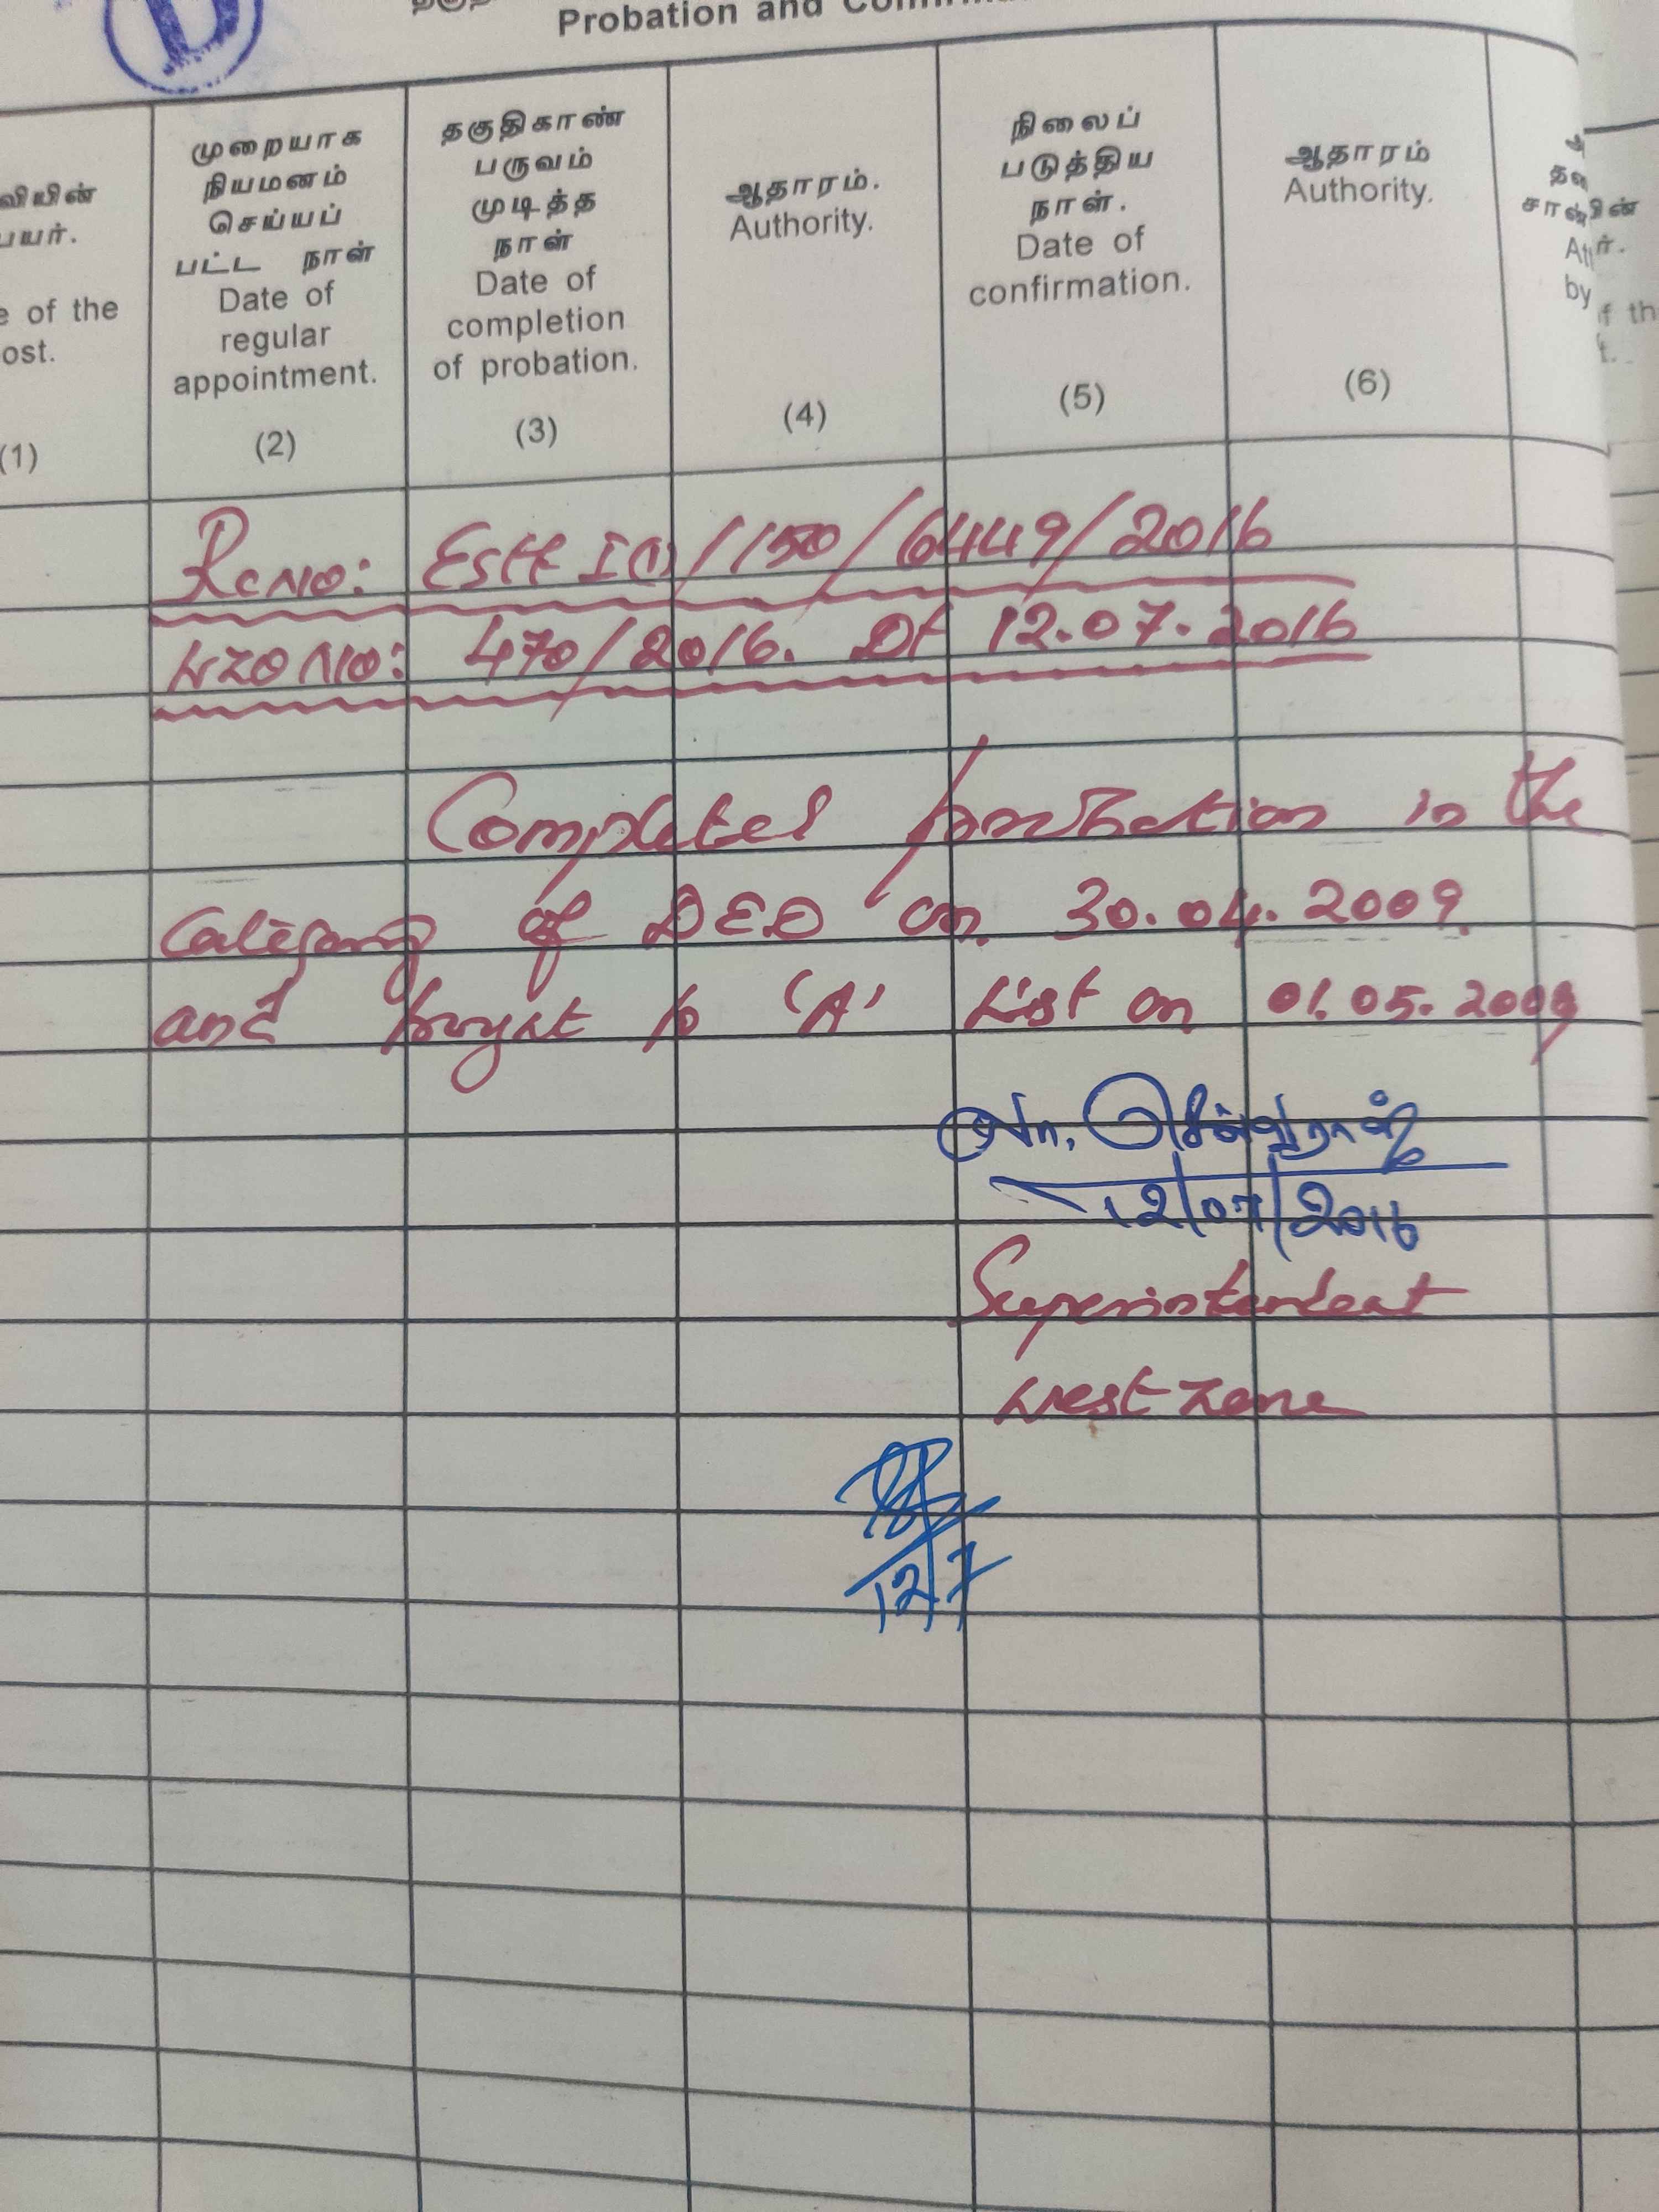 Probation and
வியின்
பயர்.
e of the
ost.
(1)
முறையாக
நியமனம்
செய்யப்
பட்ட நாள்
Date of
regular
appointment.
(2)
தகுதிகாண்
பருவம்
முடித்த
நாள்
Date of
completion
of probation.
(3)
ஆதாரம்.
Authority.
(4)
நிலைப்
படுத்திய
நாள்.
Date of
confirmation.
(5)
ஆதாரம்
Authority.
(6)
by
Rc No: Estt I(1)/150/6449/2016
WZO No: 470/2016. Dt 12.07.2016
Completed probation in the
Category of DEO on 30.04.2009
and brought to 'A' List on 01.05.2009
12/07/2016
Superintendent
West Zone
12/7